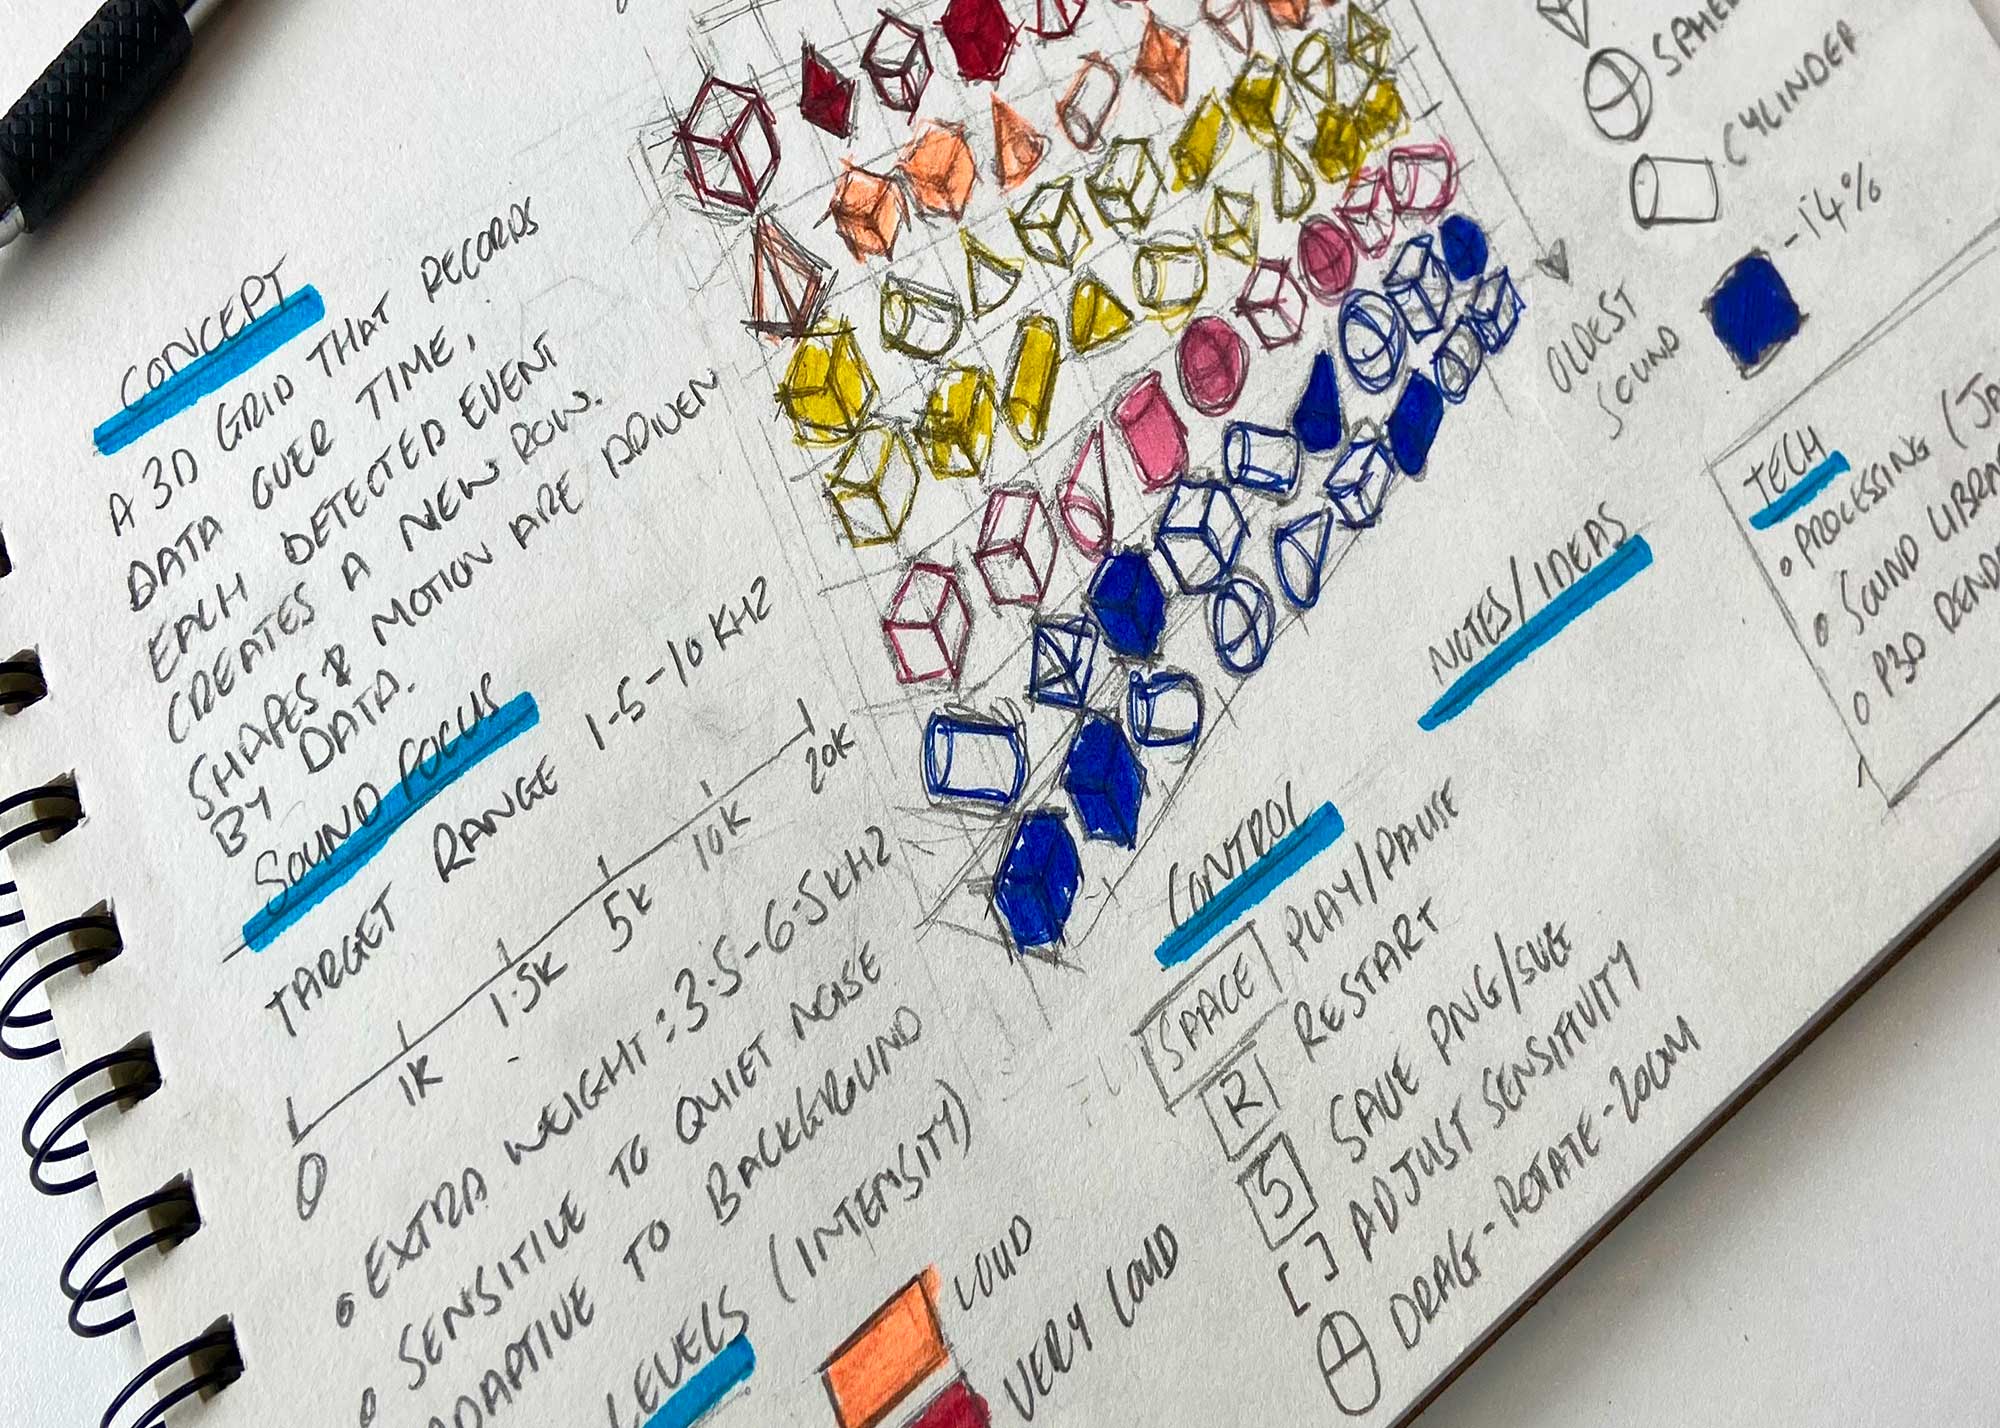 CONCEPT
A 3D GRID THAT RECORDS
DATA OVER TIME,
EACH DETECTED EVENT
CREATES A NEW ROW.
SHAPES & MOTION ARE DRIVEN
BY DATA.
SOUND FOCUS
TARGET RANGE 1-5-10 KHZ
0 1K 1.5K 5K 10K 20K
• EXTRA WEIGHT: 3.5-6.5KHZ
• SENSITIVE TO QUIET NOISE
ADAPTIVE TO BACKGROUND
LEVELS (INTENSITY)
LOUD
VERY LOUD
CYLINDER
-14%
OLDEST
SOUND
TECH
• PROCESSING (JA
• SOUND LIBRA
• P3D RENDE
NOTES/IDEAS
CONTROL
SPACE PLAY/PAUSE
R RESTART
S SAVE PNG/SVG
[ ] ADJUST SENSITIVITY
DRAG-ROTATE-ZOOM